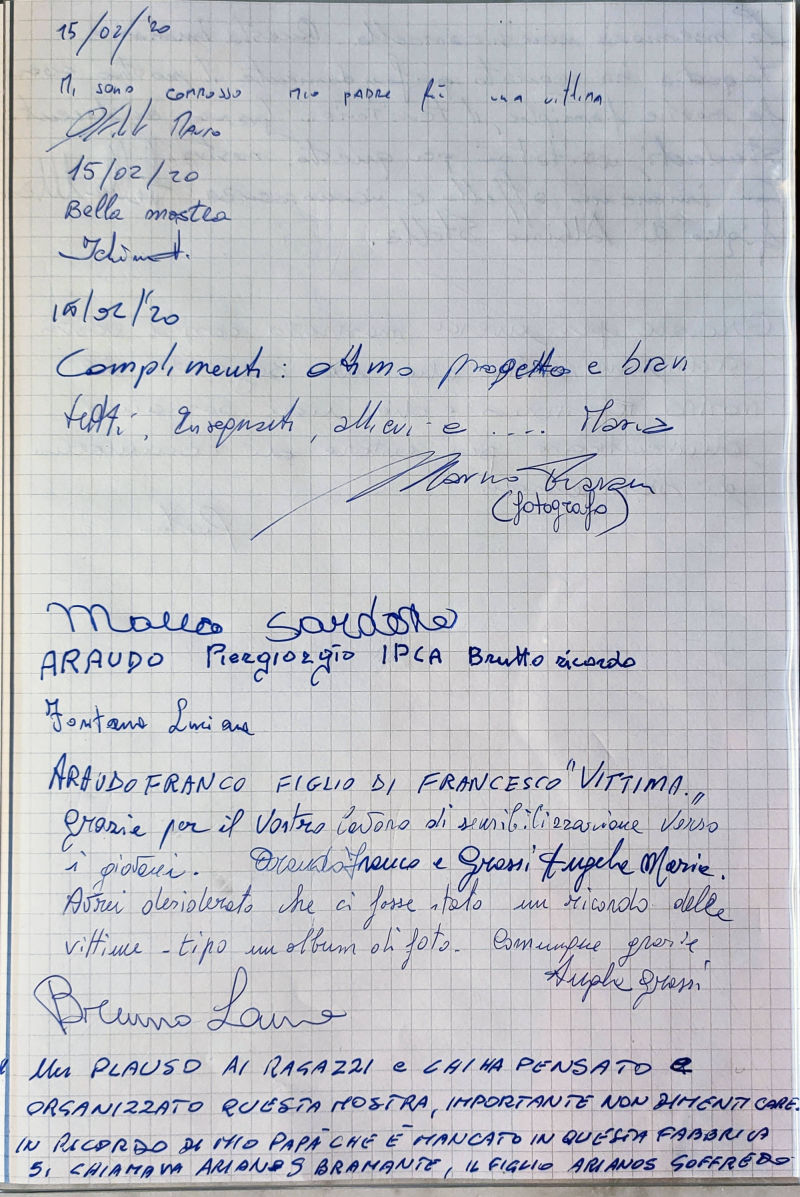 15/02/'20
Mi sono commosso mio padre fù una vittima
Mauro
15/02/20
Bella mostra
15/02/'20
Complimenti: ottimo progetto e bravi
tutti, Insegnanti, allievi e .... Maria
Marino
(fotografo)
Marco Sardone
ARAUDO Piergiorgio IPCA Brutto ricordo
Fontana Luciana
ARAUDO FRANCO FIGLIO DI FRANCESCO "VITTIMA."
Grazie per il Vostro lavoro di sensibilizzazione verso
i giovani. Araudo Franco e Grossi Angela Maria.
Avrei desiderato che ci fosse stato un ricordo delle
vittime - tipo un album di foto. Comunque grazie
Angela Grossi
Brunno
Un PLAUSO AI RAGAZZI e CHI HA PENSATO e
ORGANIZZATO QUESTA MOSTRA, IMPORTANTE NON DIMENTICARE.
IN RICORDO DI MIO PAPÀ CHE È MANCATO IN QUESTA FABBRICA
SI CHIAMAVA ARIANOS BRAMANTE, IL FIGLIO ARIANOS GOFFREDO